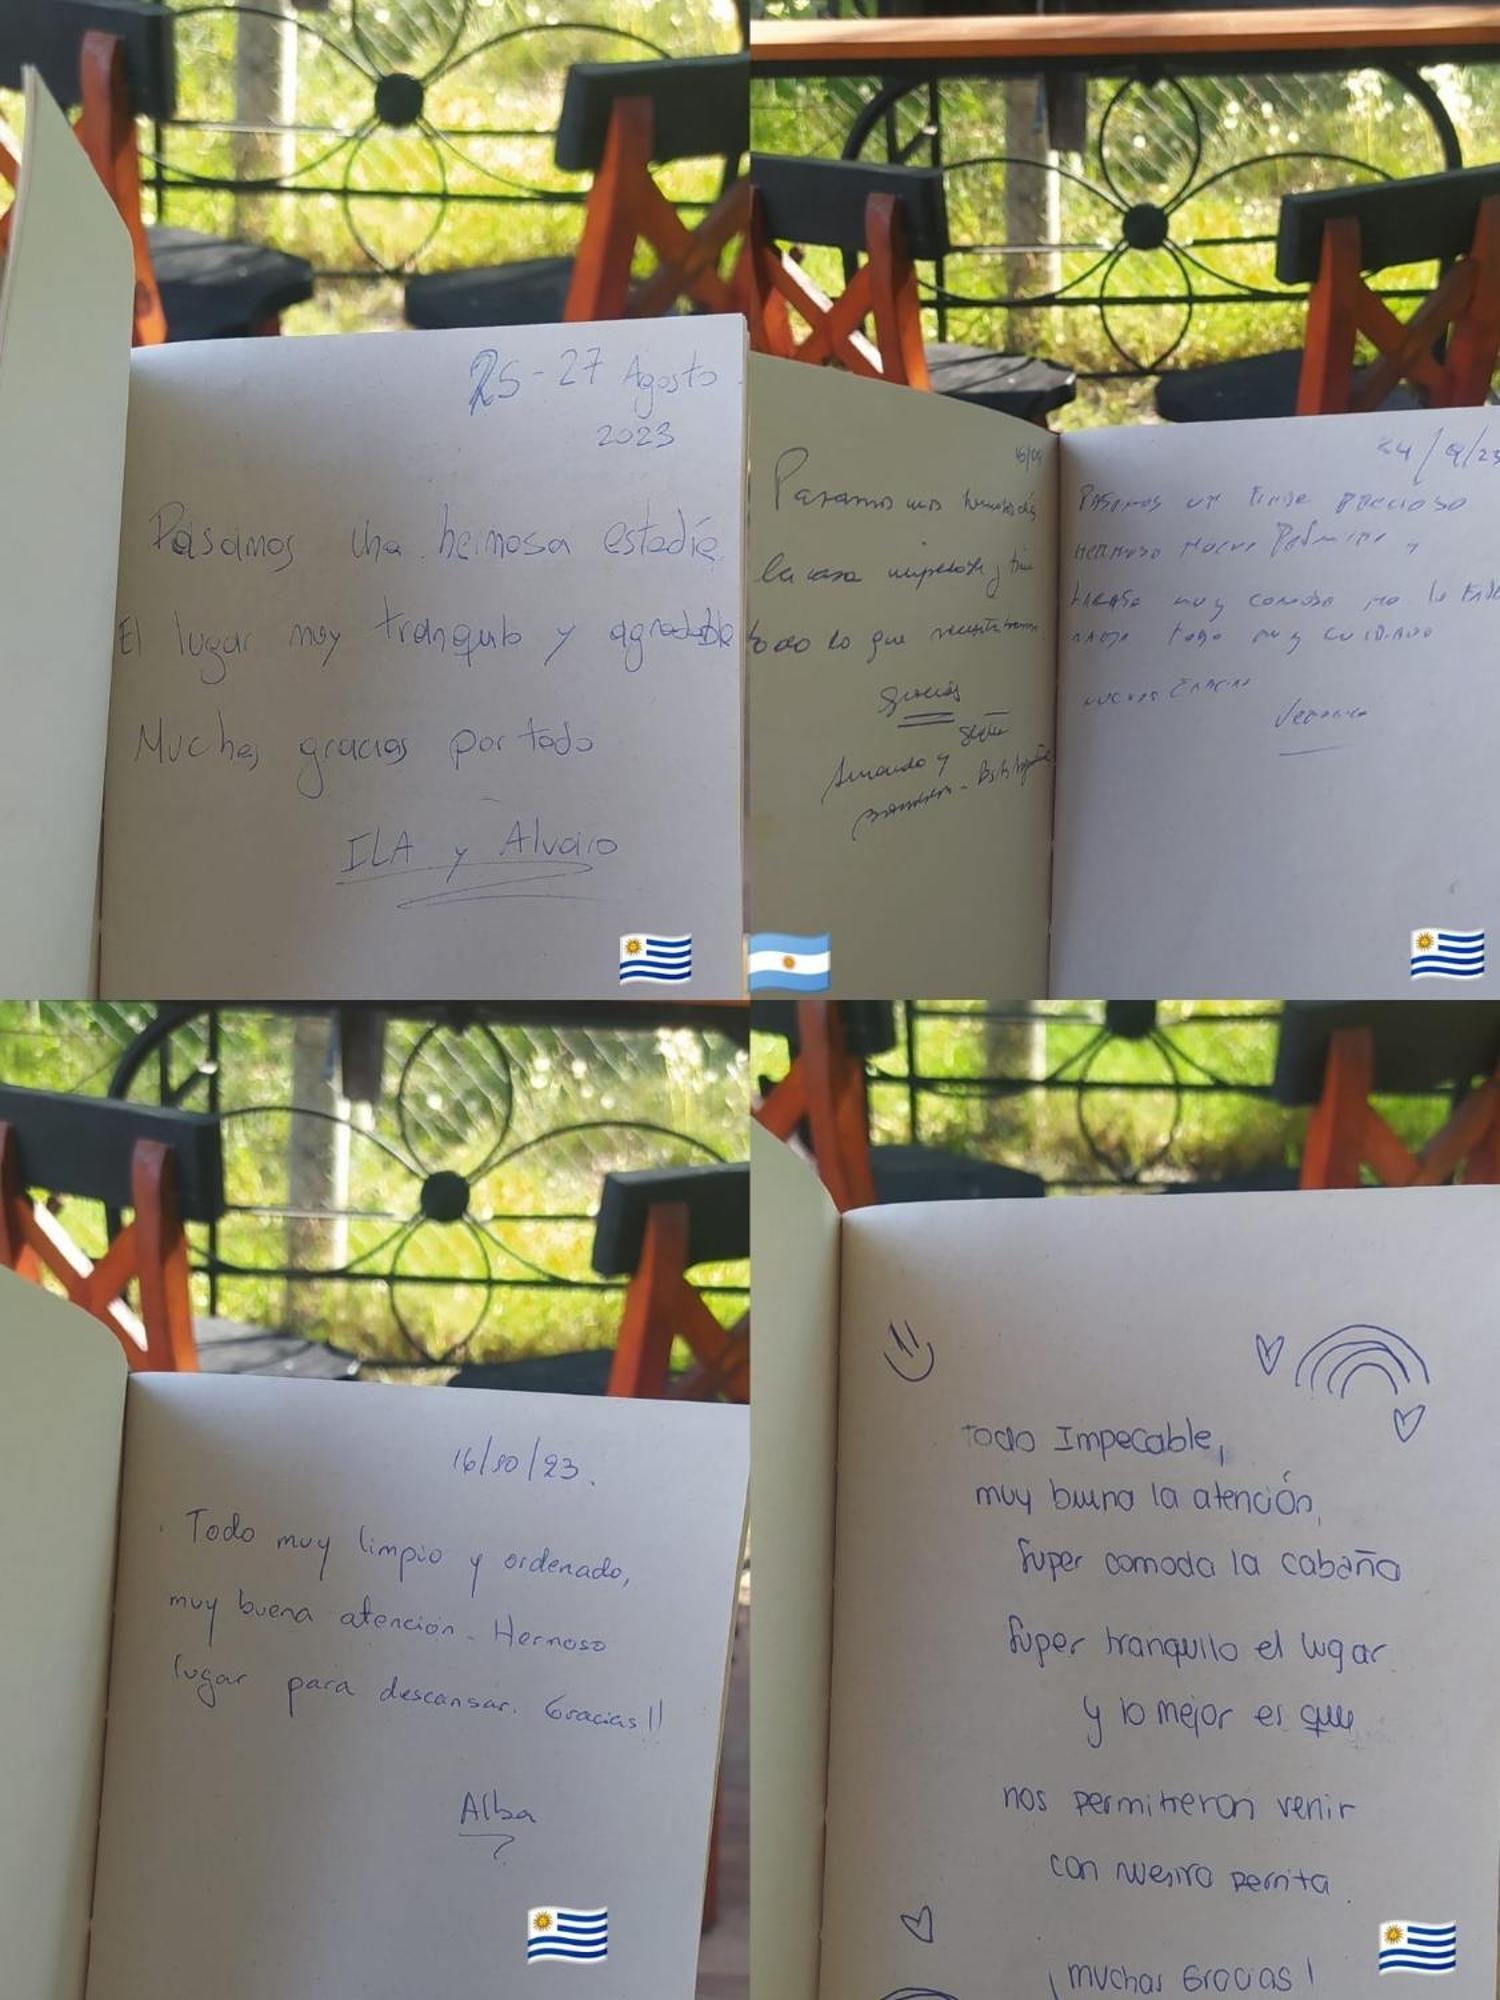 25-27 Agosto
2023
Pasamos una hermosa estadía
El lugar muy tranquilo y agradable
Muchas gracias por todo
ILA y Alvaro
Pasamos unos hermosos días
la casa impecable y tiene
todo lo que necesitabamos
gracias
Armando y
24/9/23
Pasamos un finde precioso
hermoso
muy comoda no le falta
nada todo muy cuidado
muchas gracias
Veronica
16/10/23.
Todo muy limpio y ordenado,
muy buena atención. Hermoso
lugar para descansar. Gracias!!
Alba
Todo Impecable,
muy buena la atención,
super comoda la cabaña
super tranquilo el lugar
y lo mejor es que
nos permitieron venir
con nuestra perrita.
¡muchas Gracias!